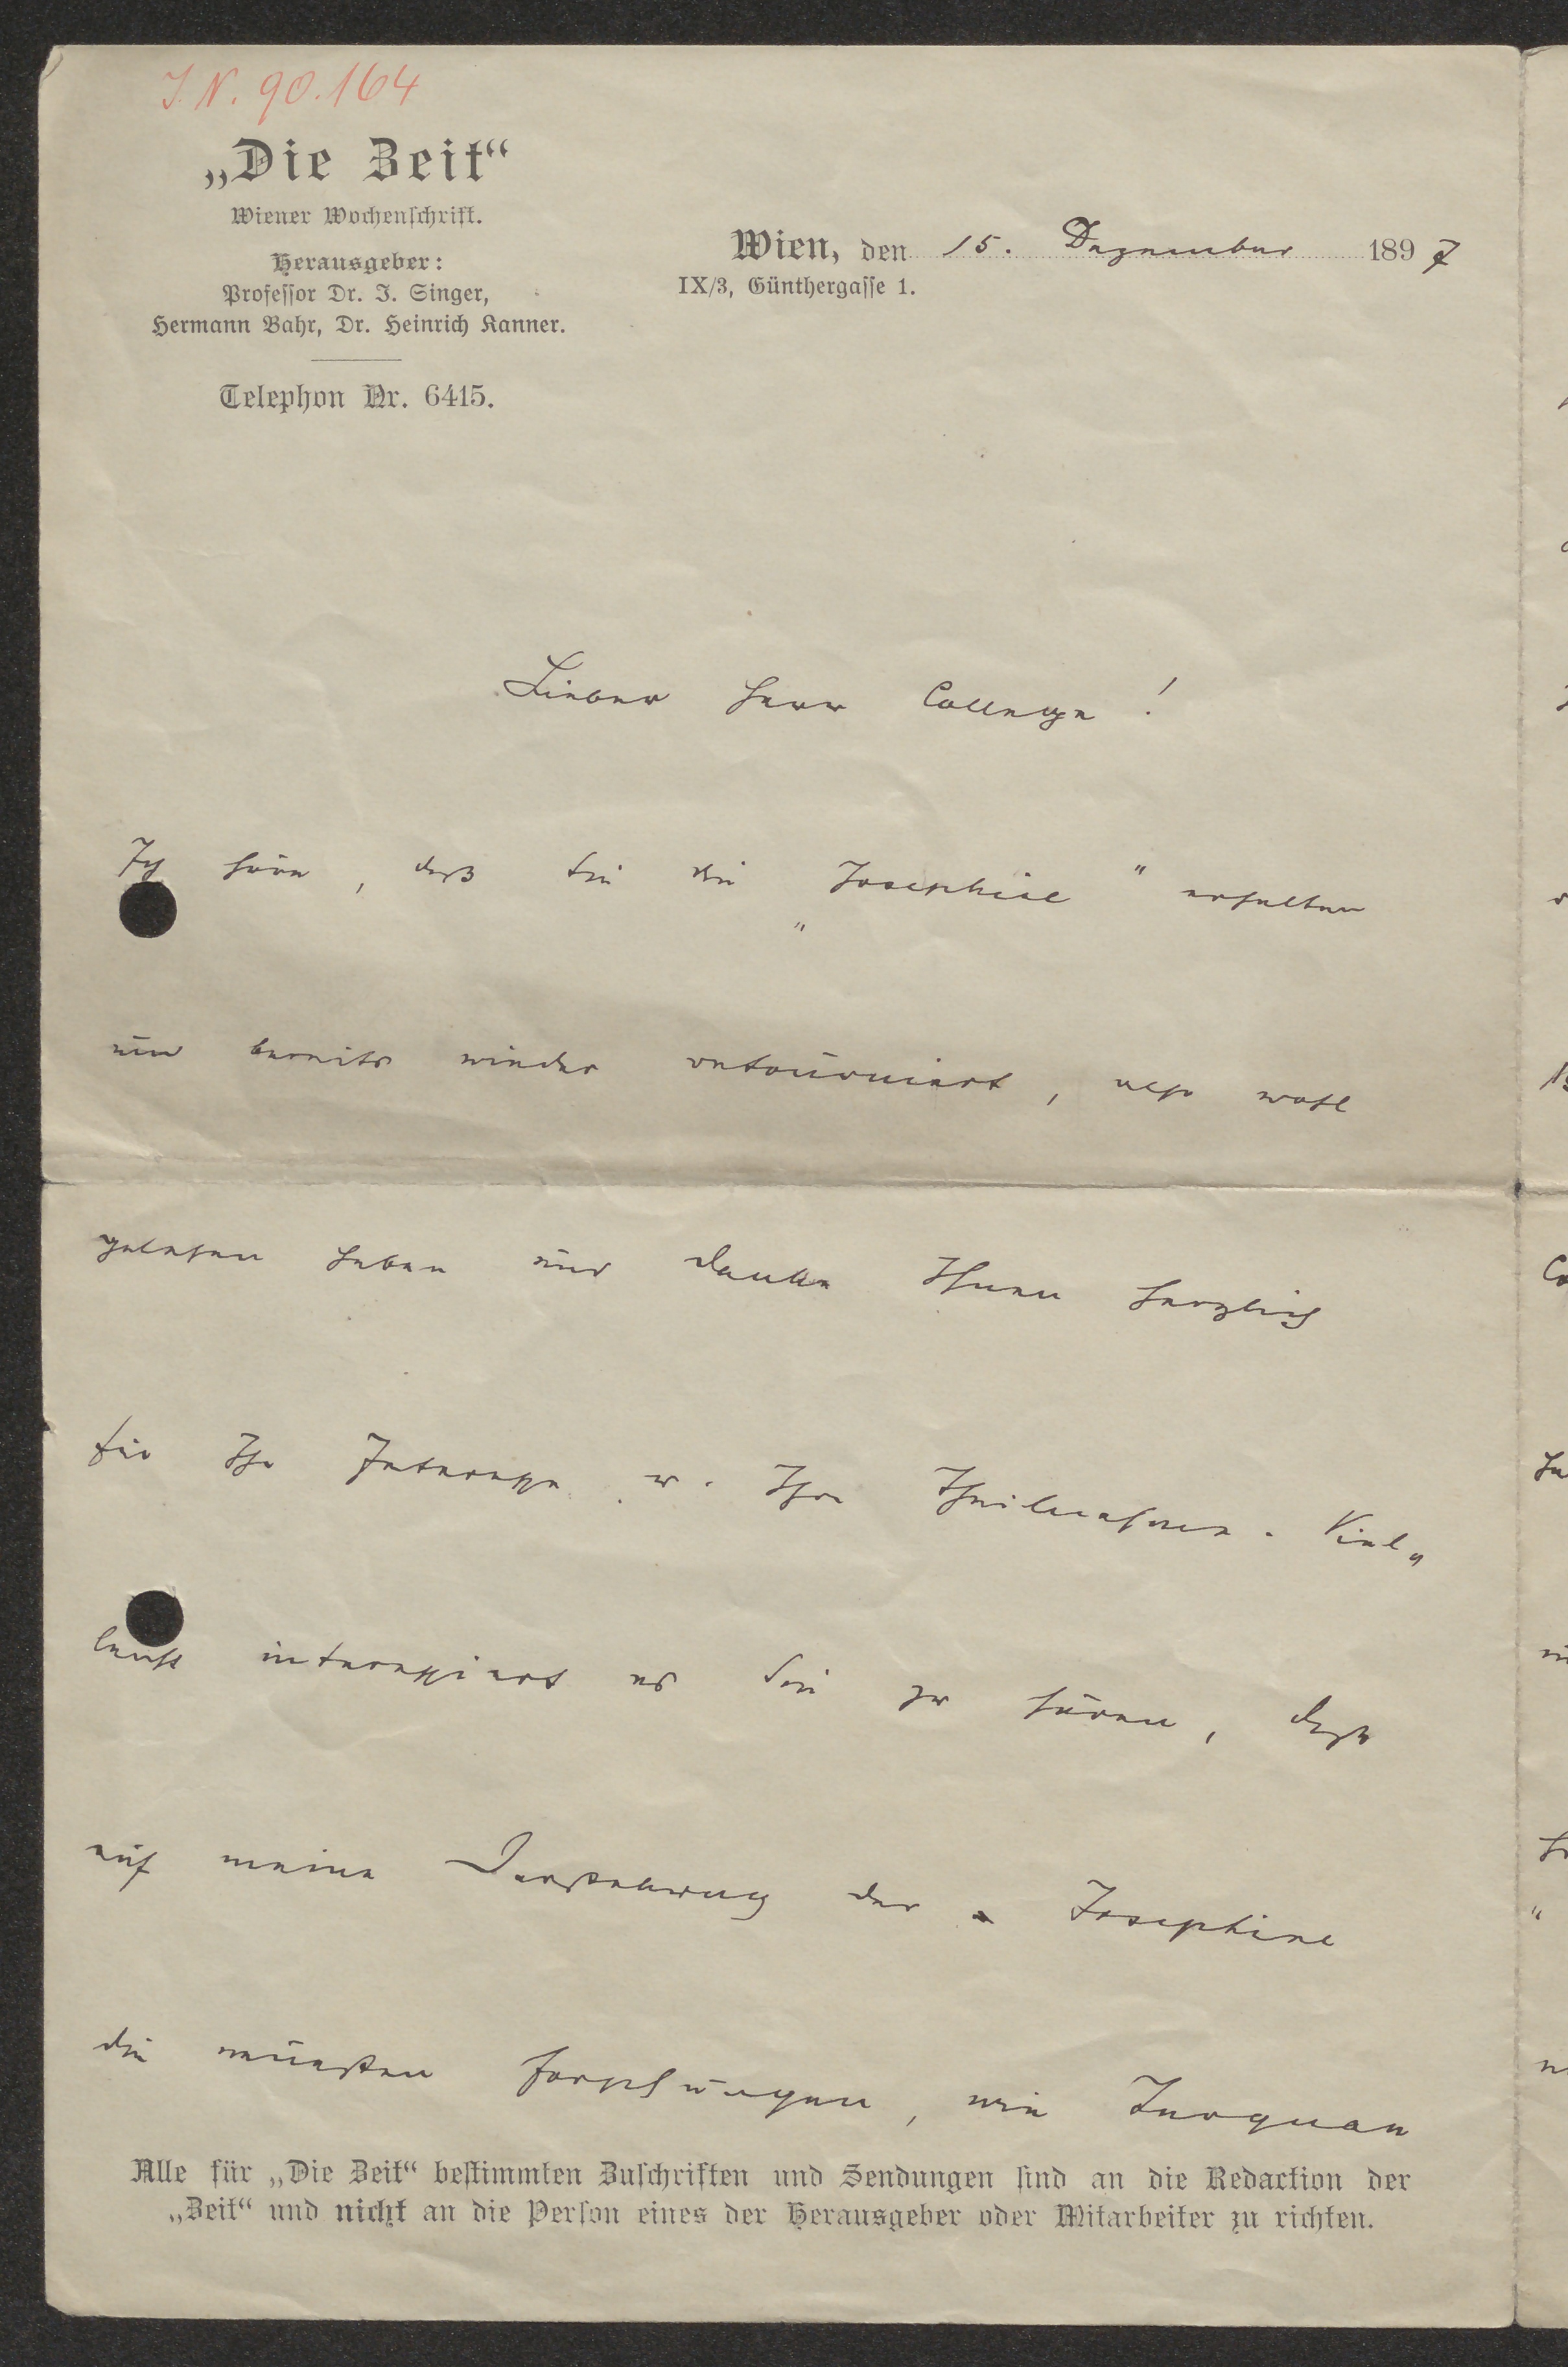 J.N. 90.164
„Die Zeit“
Wiener Wochenschrift.
Herausgeber:
Professor Dr. I. Singer,
Hermann Bahr, Dr. Heinrich Kanner.
Telephon Nr. 6415.
Wien, den 15. Dezember 1897
IX/3, Günthergasse 1.
Lieber Herr College!
Ich höre, daß Sie die „Josephine“ erhalten
und bereits wieder retourniert, also wohl
gelesen haben und danke Ihnen herzlich
für Ihr Interesse u. Ihre Theilnahme. Viel-
leicht interessiert es Sie zu hören, dass
auf meine Darstellung der Josephine
die neuesten Forschungen, wie Turquan
Alle für „Die Zeit“ bestimmten Zuschriften und Sendungen sind an die Redaction der
„Zeit“ und nicht an die Person eines der Herausgeber oder Mitarbeiter zu richten.